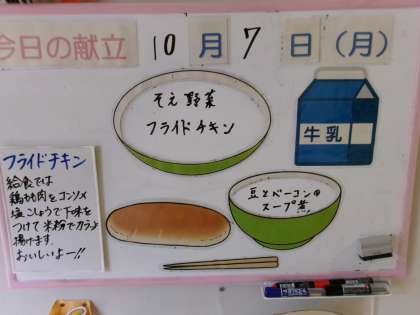 今日の献立 10月7日(月)
そえ野菜
フライドチキン
牛乳
豆とベーコンの
スープ煮
フライドチキン
給食では
鶏もも肉をコンソメ
塩こしょうで下味を
つけて米粉でカラッと
揚げます。
おいしいよー!!